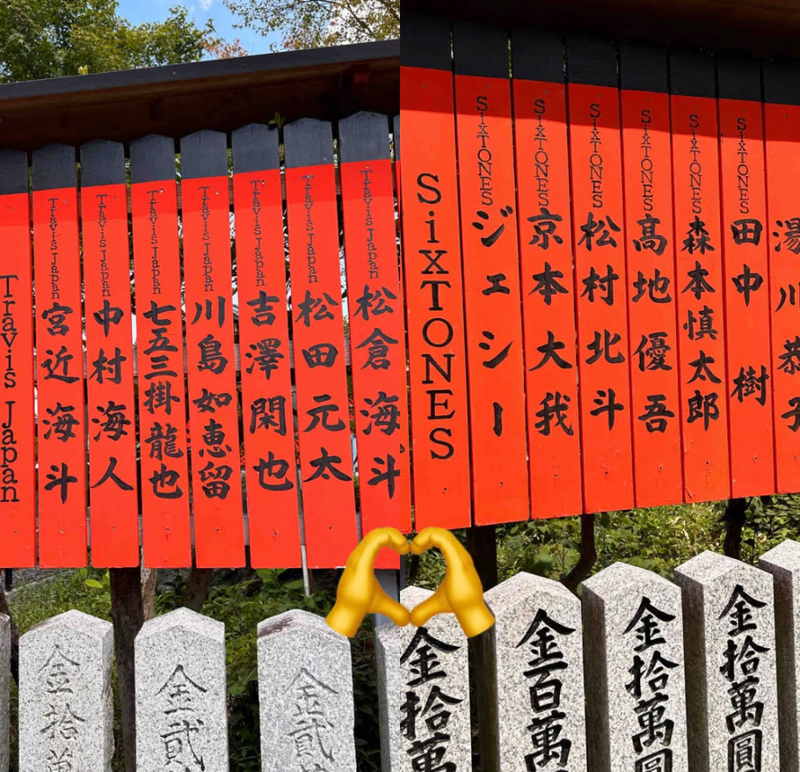 Travis Japan
Travis Japan 宮近海斗
Travis Japan 中村海人
Travis Japan 七五三掛龍也
Travis Japan 川島如恵留
Travis Japan 吉澤閑也
Travis Japan 松田元太
Travis Japan 松倉海斗
SixTONES
SixTONES ジェシー
SixTONES 京本大我
SixTONES 松村北斗
SixTONES 髙地優吾
SixTONES 森本慎太郎
SixTONES 田中樹
湯川恭子
金拾萬
金貳
金貳
金拾萬
金百萬
金拾萬圓
金拾萬圓